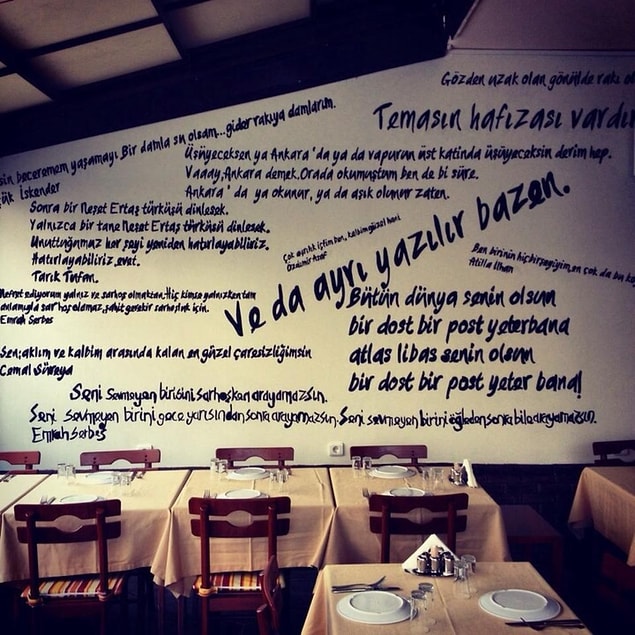 Gözden uzak olan gönülde rakı
Temasın hafızası vardır
beceremem yaşamayı. Bir damla su olsam... gider rakıya damlarım.
İskender
Üşüyeceksen ya Ankara'da ya da vapurun üst katında üşüyeceksin derim hep.
Vaaay, Ankara demek. Orada okumuştum ben de bi süre.
Ankara'da ya okunur, ya da aşık olunur zaten.
Sonra bir Neşet Ertaş türküsü dinlesek.
Yalnızca bir tane Neşet Ertaş türküsü dinlesek.
Unuttuğumuz her şeyi yeniden hatırlayabiliriz.
Hatırlayabiliriz evet.
Tarık Tufan.
Çok ayrılık içtim ben, kalbim güzel hani
Özdemir Asaf
Ve da ayrı yazılır bazen.
Ben birinin hiçbirşeyiyim, en çok da bu
Atilla İlhan
Nefret ediyorum yalnız ve sarhoş olmaktan. Hiç kimse yalnızken tam
anlamıyla sarhoş olamaz, şahit gerekir sarhoşluk için.
Emrah Serbes
Bütün dünya senin olsun
bir dost bir post yeter bana
atlas libas senin olsun
bir dost bir post yeter bana!
Sen; aklım ve kalbim arasında kalan en güzel çaresizliğimsin
Cemal Süreya
Seni sevmeyen birisini sarhoşken arayamazsın.
Seni sevmeyen birini gece yarısından sonra arayamazsın. Seni sevmeyen birini öğleden sonra bile arayamazsın.
Emrah Serbes